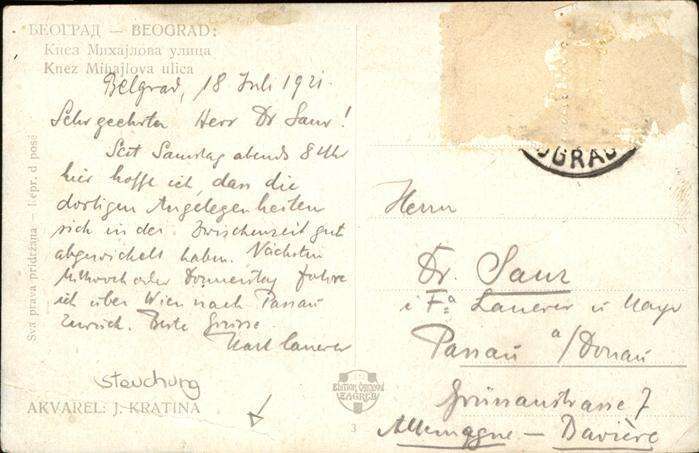 БЕОГРАД — BEOGRAD:
Кнез Михајлова улица
Knez Mihajlova ulica
Belgrad, 18 Juli 1921.
Sehr geehrter Herr Dr Saur!
Seit Samstag abends 8 Uhr
hier hoffe ich, dass die
dortigen Angelegenheiten
sich in der Zwischenzeit gut
abgewickelt haben. Nächsten
Mittwoch oder Donnerstag fahre
ich über Wien nach Passau
zurück. Beste Grüsse
Karl Lauerer
AKVAREL: J. KRATINA
Sva prava pridržana —
OGRAD
EDITION
ZAGREB
3
Herrn
Dr. Saur
i Fa Lauerer u Mayr
Passau a/Donau
7
Allemagne — Bavière